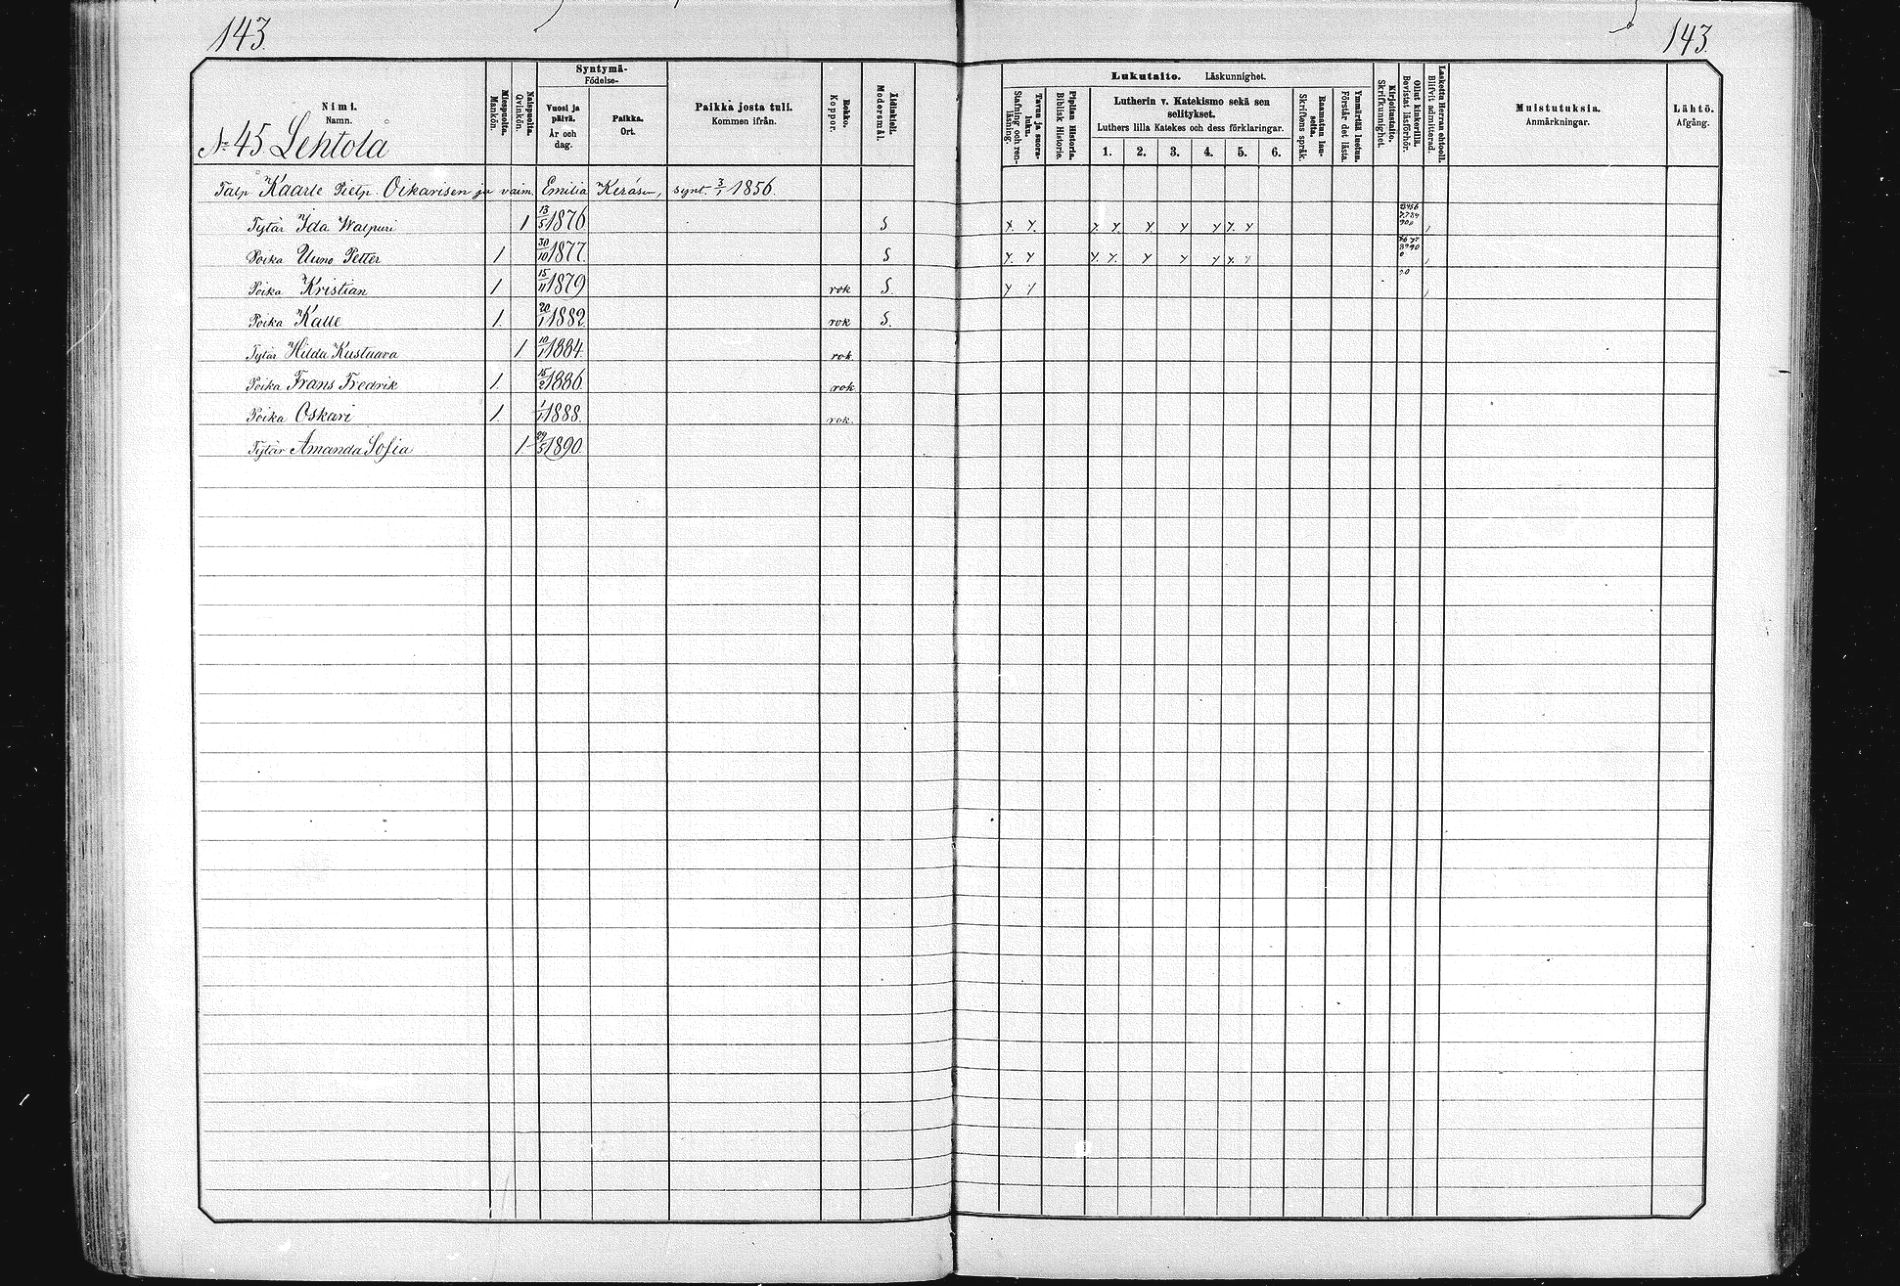 143.
143.
Nimi.
Namn.
Miespuolia.
Mankön.
Naispuolia.
Qvinkön.
Syntymä-
Födelse-
Vuosi ja päivä.
År och dag.
Paikka.
Ort.
Paikka josta tuli.
Kommen ifrån.
Rokko.
Koppor.
Äidinkieli.
Modersmål.
Lukutaito. Läskunnighet.
Tavuu ja suora luku.
Stafning och ren-läsning.
Piplian Historia.
Biblisk Historia.
Lutherin v. Katekismo sekä sen selitykset.
Luthers lilla Katekes och dess förklaringar.
1. 2. 3. 4. 5. 6.
Raamatun lau-seita.
Skriftens språk.
Ymmärtää luetun.
Förstår det lästa.
Kirjoitustaito.
Skrifkunnighet.
Ollut kinkerillä.
Bevistat läsförhör.
Laskettu Herran ehtooll.
Blifvit admitterad.
Muistutuksia.
Anmärkningar.
Lähtö.
Afgång.
No 45 Lehtola
Talp Kaarle Pietp. Oikarisen ja vaim. Emilia Keräsen, synt. 3/1 1856.
Tytär Ida Walpuri 1 13/5 1876 S
Poika Uuno Petter 1 30/10 1877. S
Poika Kristian 1 15/11 1879 rok S.
Poika Kalle 1. 20/1 1882. rok S.
Tytär Hilda Kustaava 1 10/1 1884. rok.
Poika Frans Fredrik 1. 15/2 1886 rok
Poika Oskari 1. 1/1 1888. rok.
Tytär Amanda Sofia 1 29/5 1890.